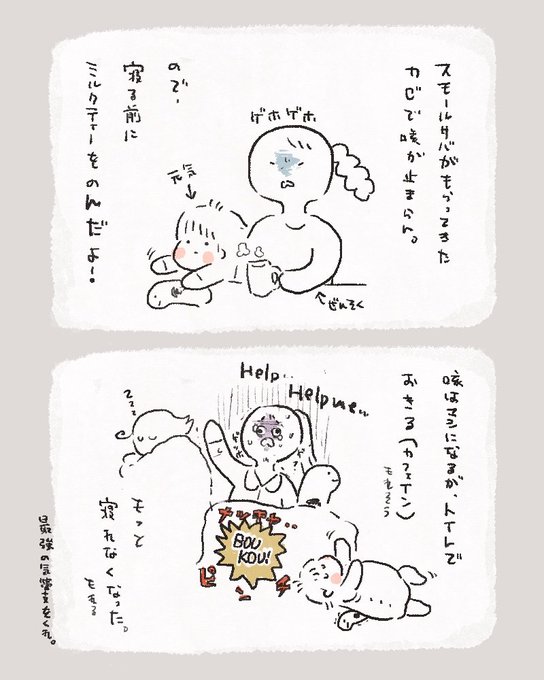 スモールサバがもらってきた
カゼで咳が止まらん。
ゲホゲホ
元気
ので、
寝る前に
ミルクティーをのんだよ!
ぜんそく
咳はマシになるが、トイレで
おきる(カフェイン)
もれそう
Help..
Help me..
zzz
メッチャ..
BOU
KOU!
ピンチ
もっと
寝れなくなった。
もれる
最強の気管支をくれ。